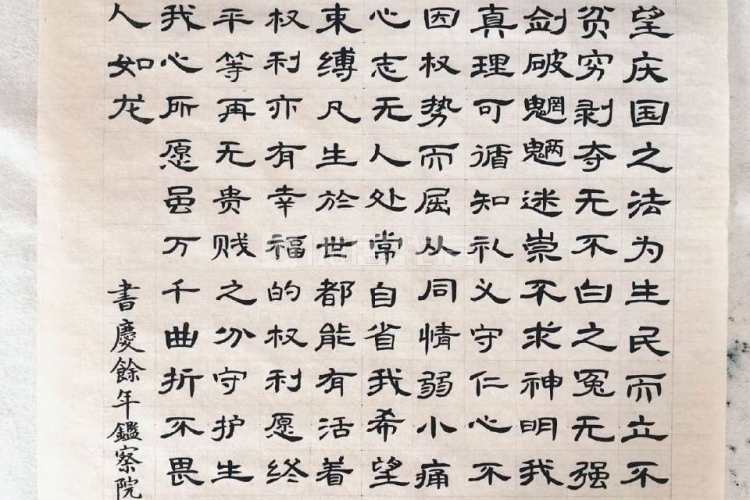 望庆国之法为生民而立不
贫穷剥夺无不白之冤无强
剑破魍魉迷崇不求神明我
真理可循知礼义守仁心不
因权势而屈从同情弱小痛
心志无人处常自省我希望
束缚凡生於世都能有活着
权利亦有幸福的权利愿终
平等再无贵贱之分守护生
我心所愿虽万千曲折不畏
人如龙
書慶餘年鑑察院